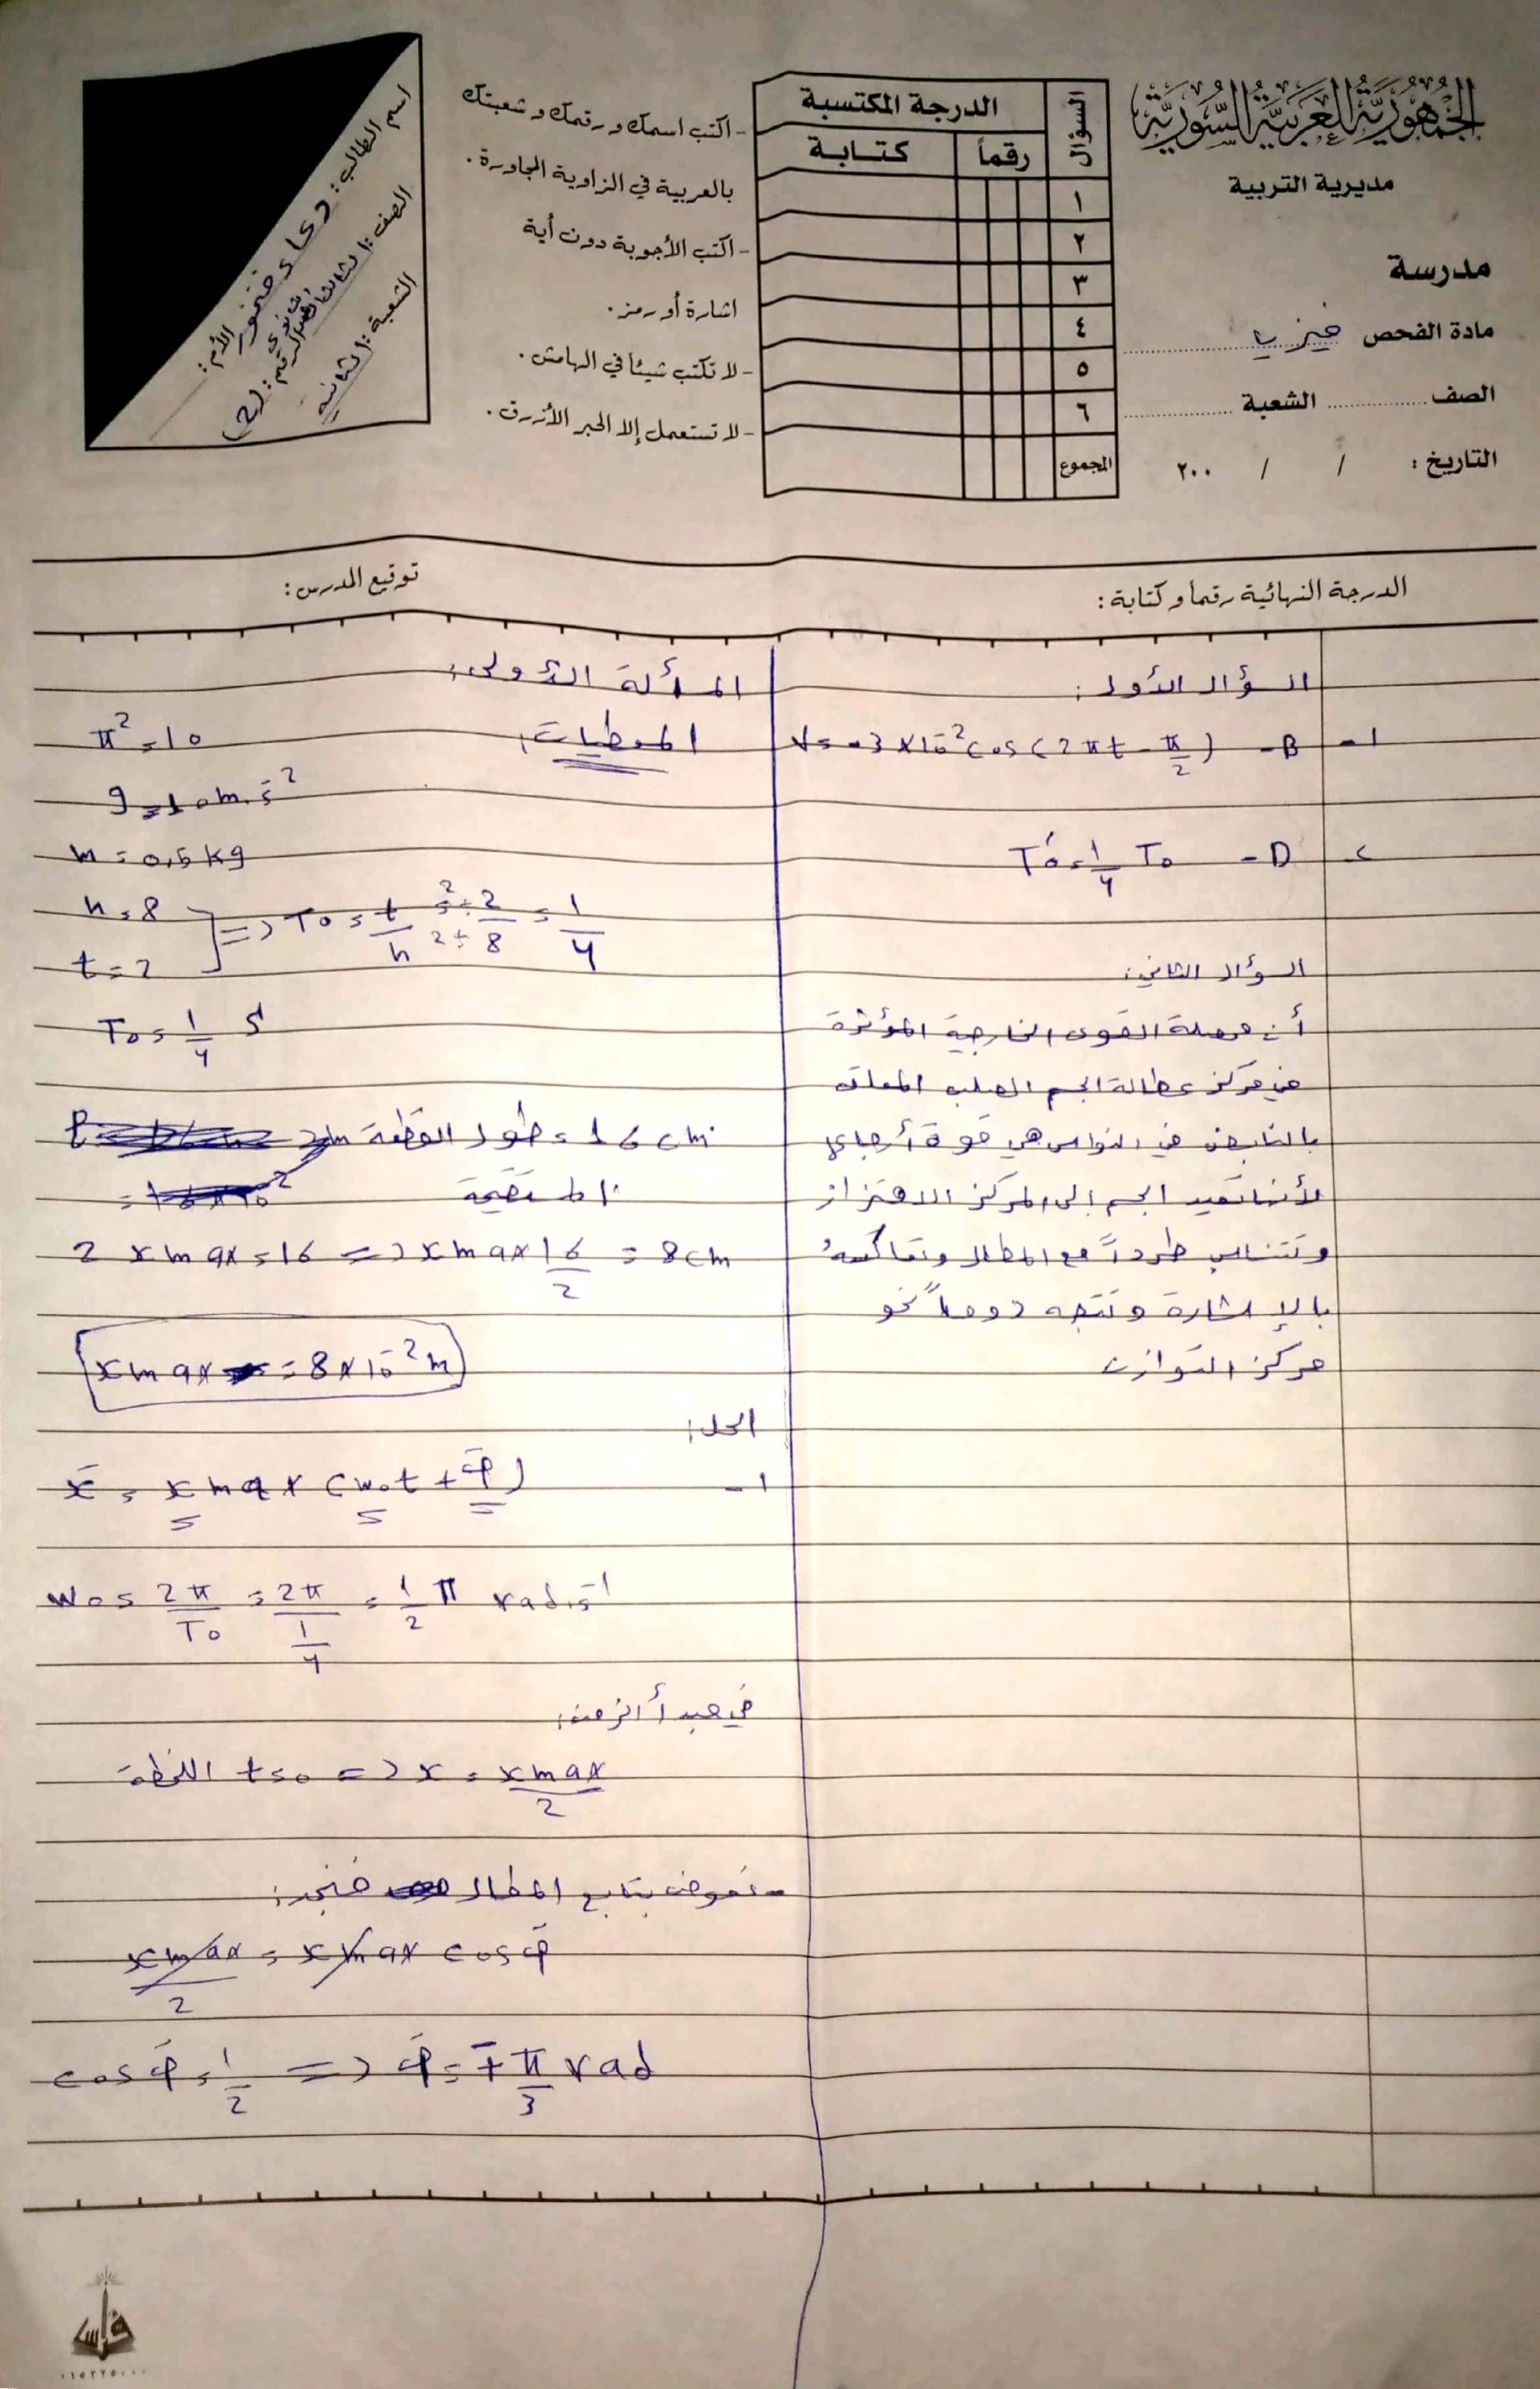 الجمهورية العربية السورية
مديرية التربية
مدرسة
مادة الفحص فيزيا
الصف ........ الشعبة ........
التاريخ : / / ٢٠٠
السؤال
الدرجة المكتسبة
رقماً
كتابة
١
٢
٣
٤
٥
٦
المجموع
- اكتب اسمك ورقمك وشعبتك
بالعربية في الزاوية المجاورة .
- اكتب الأجوبة دون أية
اشارة أو رمز .
- لا تكتب شيئاً في الهامش .
- لا تستعمل إلا الحبر الأزرق .
اسم الطالب :
الأم :
الصف : الثالث الثانوي
الرقم :
الشعبة : الثانية
الدرجة النهائية رقماً وكتابة :
توقيع المدرس :
السؤال الأول :
١- B- v = -3×10^-2 cos(2πt - π/2)
٢ D- T'0 = 1/4 T0
السؤال الثاني :
أن محصلة القوى الخارجية المؤثرة
في مركز عطالة الجسم الصلب المعلق
بالنابض في النواس هي قوة أرجاع
لأنها تعيد الجسم إلى المركز الاهتزاز
وتتناسب طرداً مع المطال وتعاكسه
بالإشارة وتتجه دوماً نحو
مركز التوازن
المسألة الأولى :
المعطيات : π² = 10
g = 10 m.s^-2
m = 0,5 kg
n = 8
t = 2
=> T0 = t/n = 2÷2/2÷8 = 1/4
T0 = 1/4 s
16 cm = طول القطعة
المستقيمة
2 xmax = 16 => xmax 16/2 = 8cm
xmax = 8×10^-2 m
الحل :
١- x̄ = xmax (w0t + φ̄)
w0 = 2π/T0 = 2π/(1/4) = 1/2 π rad.s^-1
في مبدأ الزمن :
اللحظة t=0 => x = xmax/2
- نعوض بتابع المطال فنجد :
xmax/2 = xmax cos φ̄
cos φ̄ = 1/2 => φ̄ = ∓ π/3 rad
فراس